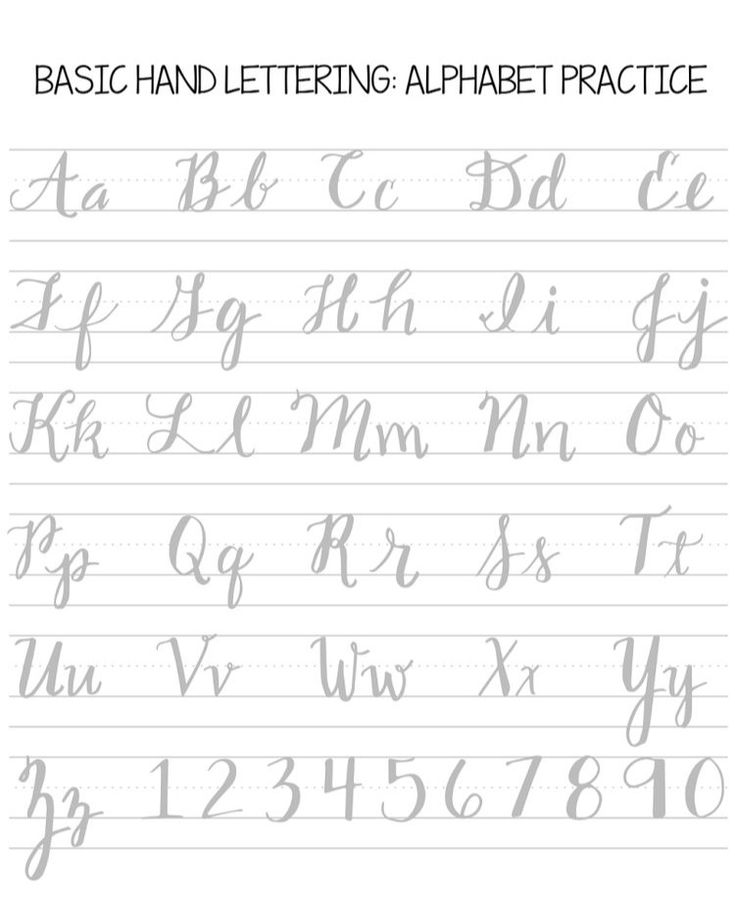 BASIC HAND LETTERING: ALPHABET PRACTICE
Aa Bb Cc Dd Ee
Ff Gg Hh Ii Jj
Kk Ll Mm Nn Oo
Pp Qq Rr Ss Tt
Uu Vv Ww Xx Yy
Zz 1 2 3 4 5 6 7 8 9 0